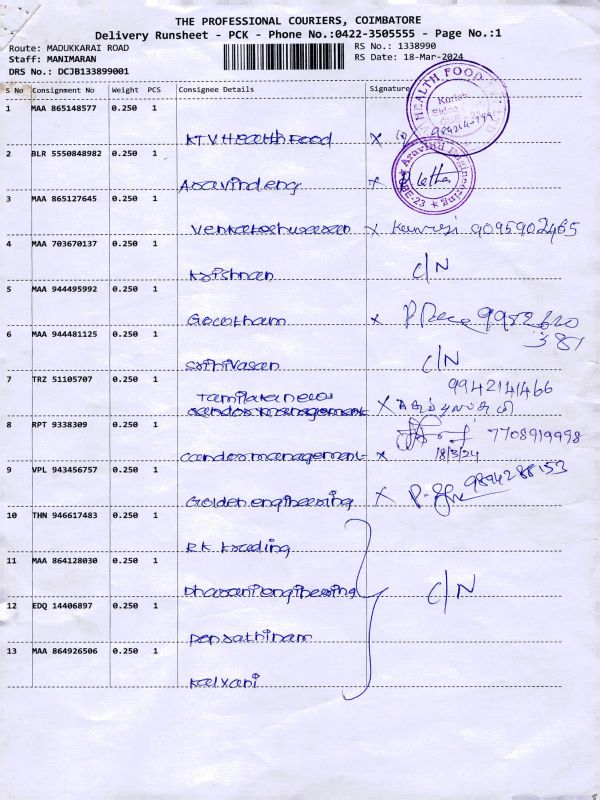 THE PROFESSIONAL COURIERS, COIMBATORE
Delivery Runsheet - PCK - Phone No.:0422-3505555 - Page No.:1
Route: MADUKKARAI ROAD
RS No.: 1338990
Staff: MANIMARAN
RS Date: 18-Mar-2024
DRS No.: DCJB133899001
S No Consignment No Weight PCS Consignee Details Signature
1 MAA 865148577 0.250 1
HEALTH FOOD
KTV Health Food X
2 BLR 5550848982 0.250 1
Aravind eng X
Aravind Engineering
3 MAA 865127645 0.250 1
Venkateshwaran X 9095902465
4 MAA 703670137 0.250 1
Krishnan C/N
5 MAA 944495992 0.250 1
Gocotham X 9952620
381
6 MAA 944481125 0.250 1
Srinivasan C/N
7 TRZ 51105707 0.250 1
9942141466
Tamilara news
candor management X
8 RPT 9338309 0.250 1
7708919998
candor management X 18/3/24
9 VPL 943456757 0.250 1
Golden engineering X 9894288153
10 THN 946617483 0.250 1
RK trading
11 MAA 864128030 0.250 1
Dharani engineering C/N
12 EDQ 14406897 0.250 1
Ponrathinam
13 MAA 864926506 0.250 1
Kalyani